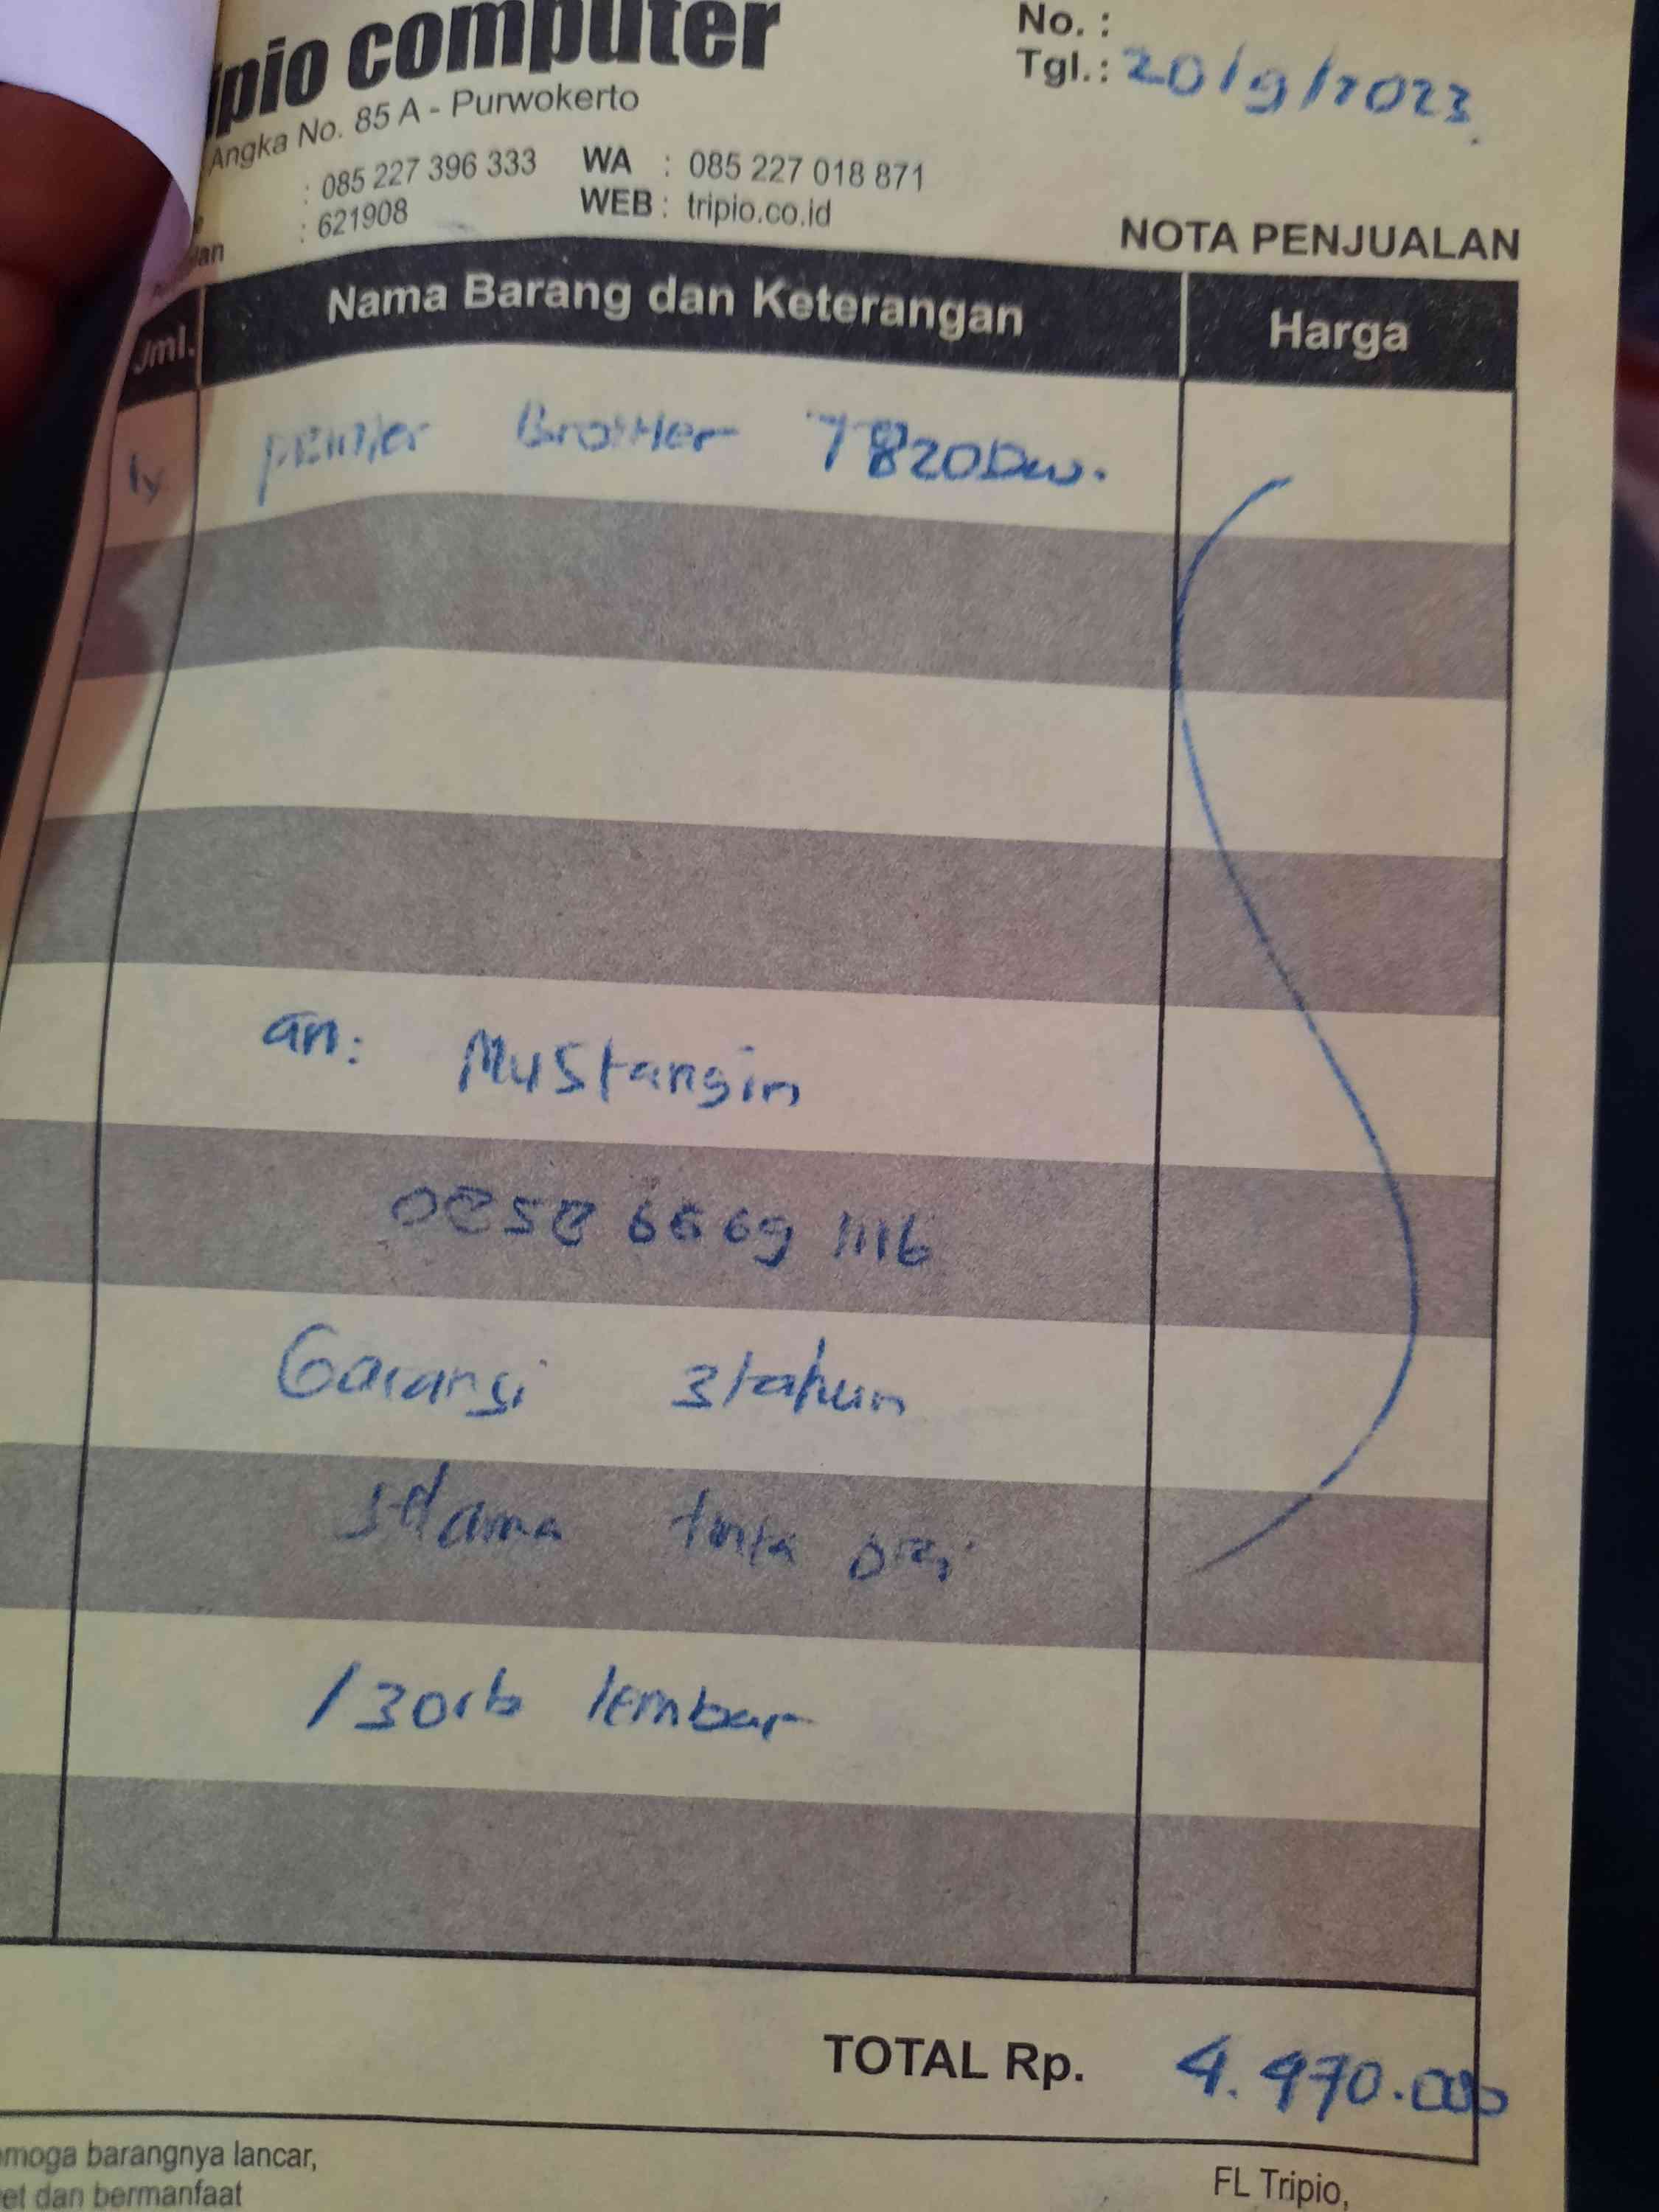 ipio computer
No. :
Tgl.: 20/9/2023
Angka No. 85 A - Purwokerto
: 085 227 396 333 WA : 085 227 018 871
: 621908 WEB : tripio.co.id
NOTA PENJUALAN
Jml. Nama Barang dan Keterangan Harga
1x printer Brother T820DW.
an: Mustangin
0858 6669 1116
Garansi 3 tahun
selama tinta ori
/30rb lembar
TOTAL Rp. 4.970.000
moga barangnya lancar,
et dan bermanfaat
FL Tripio,